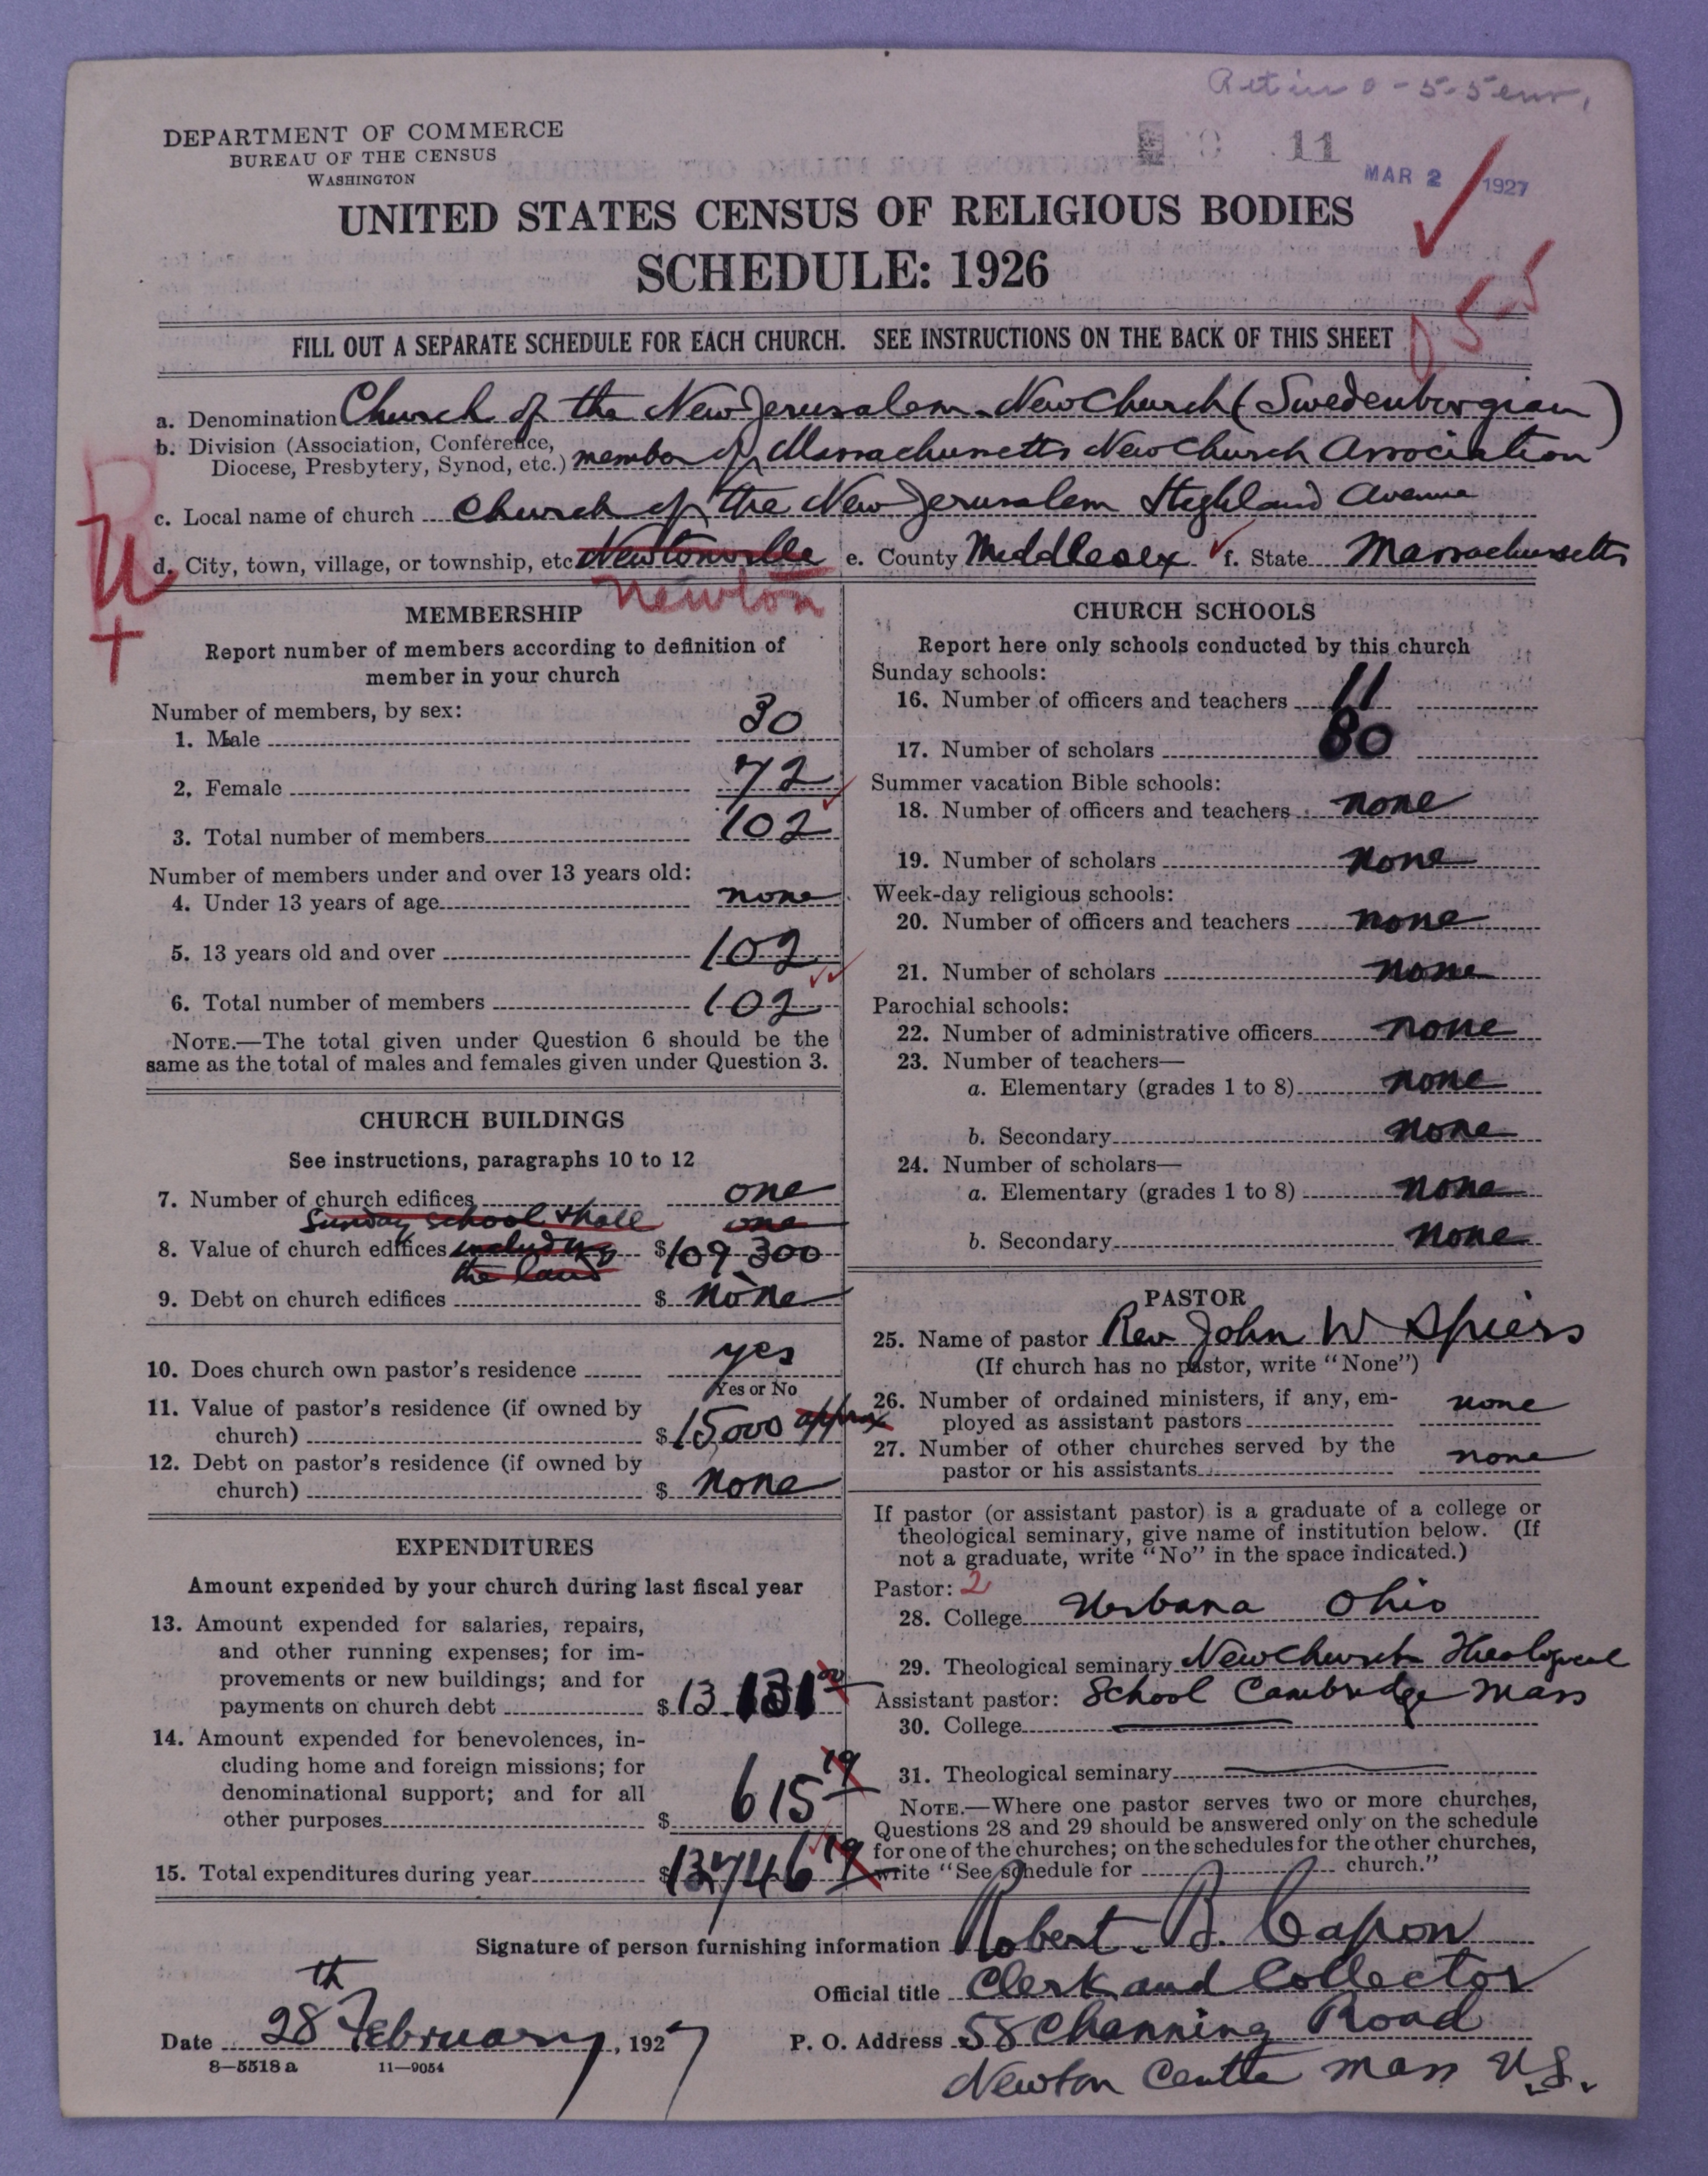 DEPARTMENT OF COMMERCE
BUREAU OF THE CENSUS
WASHINGTON
11
MAR 2 1927
UNITED STATES CENSUS OF RELIGIOUS BODIES
SCHEDULE: 1926
FILL OUT A SEPARATE SCHEDULE FOR EACH CHURCH. SEE INSTRUCTIONS ON THE BACK OF THIS SHEET
a. Denomination Church of the New Jerusalem. New Church (Swedenborgian)
b. Division (Association, Conference,
Diocese, Presbytery, Synod, etc.) member of Massachusetts New Church Association
c. Local name of church Church of the New Jerusalem Highland Avenue
d. City, town, village, or township, etc Newtonville e. County Middlesex f. State Massachusetts
Newton
MEMBERSHIP
Report number of members according to definition of
member in your church
Number of members, by sex:
1. Male 30
2. Female 72
3. Total number of members 102
Number of members under and over 13 years old:
4. Under 13 years of age none
5. 13 years old and over 102
6. Total number of members 102
NOTE.—The total given under Question 6 should be the
same as the total of males and females given under Question 3.
CHURCH BUILDINGS
See instructions, paragraphs 10 to 12
7. Number of church edifices one
Sunday school & hall one
8. Value of church edifices including $109 300
the land
9. Debt on church edifices $ none
10. Does church own pastor's residence yes
Yes or No
11. Value of pastor's residence (if owned by
church) $15,000 approx
12. Debt on pastor's residence (if owned by
church) $ none
EXPENDITURES
Amount expended by your church during last fiscal year
13. Amount expended for salaries, repairs,
and other running expenses; for im-
provements or new buildings; and for
payments on church debt $13 131
14. Amount expended for benevolences, in-
cluding home and foreign missions; for
denominational support; and for all
other purposes $ 615 19
15. Total expenditures during year $13746 19
CHURCH SCHOOLS
Report here only schools conducted by this church
Sunday schools:
16. Number of officers and teachers 11
17. Number of scholars 80
Summer vacation Bible schools:
18. Number of officers and teachers none
19. Number of scholars none
Week-day religious schools:
20. Number of officers and teachers none
21. Number of scholars none
Parochial schools:
22. Number of administrative officers none
23. Number of teachers—
a. Elementary (grades 1 to 8) none
b. Secondary none
24. Number of scholars—
a. Elementary (grades 1 to 8) none
b. Secondary none
PASTOR
25. Name of pastor Rev John W Spiers
(If church has no pastor, write "None")
26. Number of ordained ministers, if any, em-
ployed as assistant pastors none
27. Number of other churches served by the
pastor or his assistants none
If pastor (or assistant pastor) is a graduate of a college or
theological seminary, give name of institution below. (If
not a graduate, write "No" in the space indicated.)
Pastor: 2
28. College Urbana Ohio
29. Theological seminary New Church Theological
Assistant pastor: School Cambridge Mass
30. College
31. Theological seminary
NOTE.—Where one pastor serves two or more churches,
Questions 28 and 29 should be answered only on the schedule
for one of the churches; on the schedules for the other churches,
write "See schedule for church."
Signature of person furnishing information Robert. B. Capon
Official title Clerk and Collector
Date 28th February, 1927 P. O. Address 58 Channing Road
8—5518 a 11—9054
Newton Centre Mass U.S.